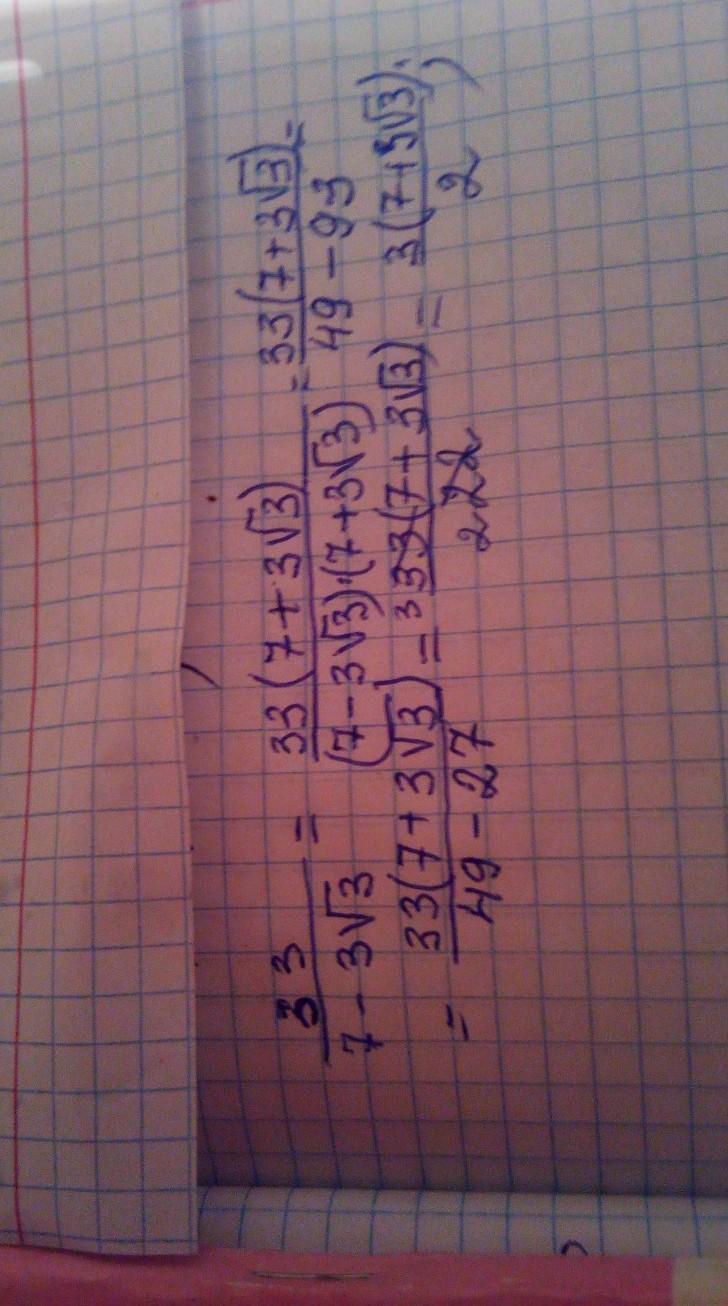 33/(7 - 3√3) = 33(7 + 3√3)/((7 - 3√3)·(7 + 3√3)) = 33(7 + 3√3)/(49 - 93) =
= 33(7 + 3√3)/(49 - 27) = ³33(7 + 3√3)/(₂22) = 3(7 + 3√3)/2;